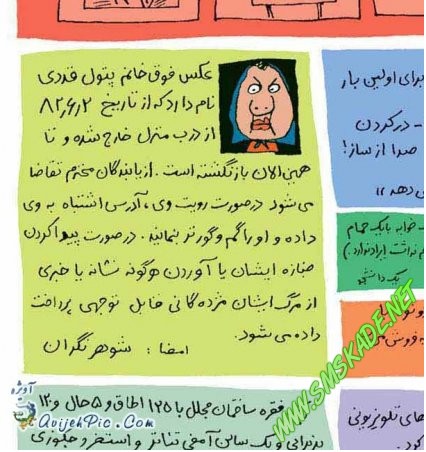 عکس فوق خانم پتول قندی
نام دارد که از تاریخ ۸۲٫۶٫۲
از درب منزل خارج شده و تا
همین الان بازنگشته است. از یابندگان محترم تقاضا
می شود درصورت رویت وی، آدرس اشتباه به وی
داده و او را گم و گورتر نمایند. درصورت پیدا کردن
جنازه ایشان یا آوردن هرگونه نشانه یا خبری
از مرگ ایشان مژدگانی قابل توجهی پرداخت
داده می شود.
امضا: شوهر نگران
برای اولین بار
- در کردن
صدا از ساز!
می دهد
خوابه با یک حمام
یک دانشجو
فقره ساختمان مجلل با ۱۲۵ اطاق و ۵ هال و ۱۲
پذیرایی و یک سالن آمفی تئاتر و استخر و جکوزی
های تلویزیونی
کرد.
www.SMSKADE.NET
آویژه
AvijehPic.Com